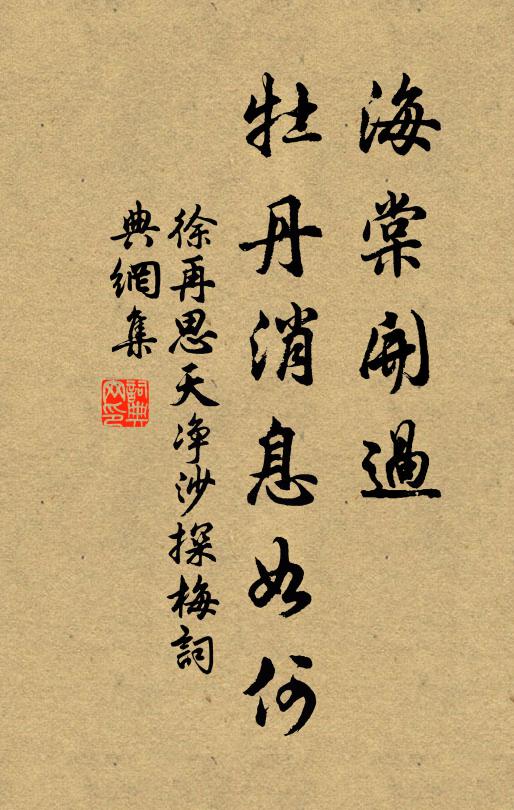 海棠開過
牡丹消息如何
徐再思天净沙探梅詞
典網集
詞典
網印